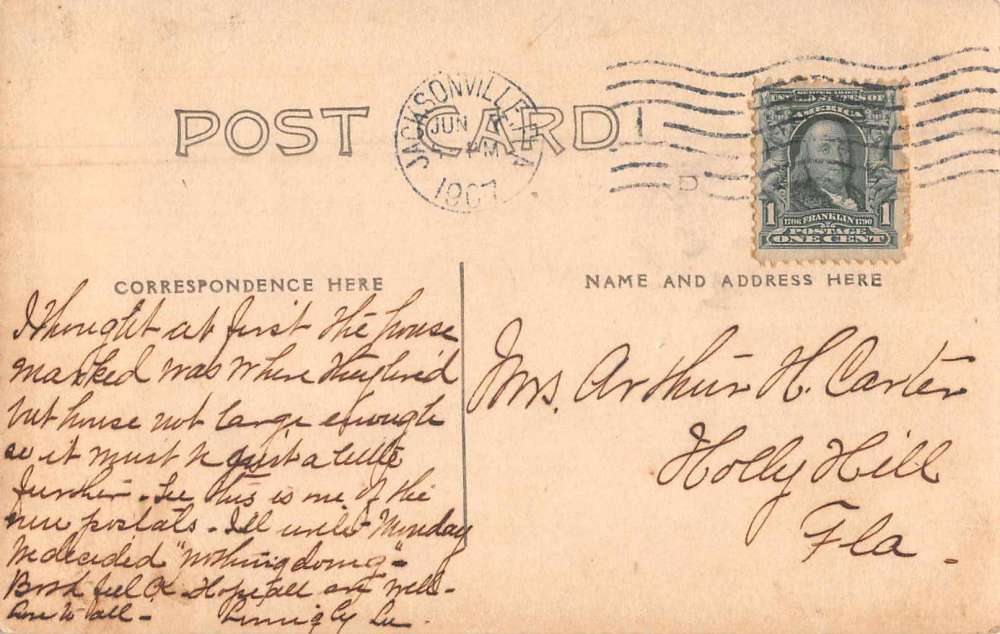 POST CARD
JACKSONVILLE, FLA
JUN
PM
1907
D
UNITED STATES OF
AMERICA
1 1706 FRANKLIN 1790 1
POSTAGE
ONE CENT
CORRESPONDENCE HERE
I thought at first the house
marked was where they lived
but house not large enough
so it must be just a little
further - See this is one of the
new postals - Ill write Monday
We decided "nothing doing" -
Both feel O.K. Hope all are well -
Love to all -
NAME AND ADDRESS HERE
Mrs. Arthur H. Carter
Holly Hill
Fla -